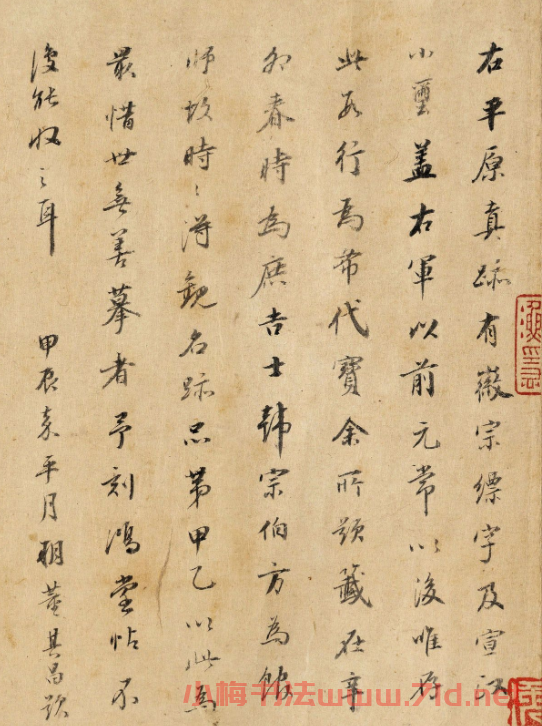 右平原真跡有徽宗縹字及宣和
小璽蓋右軍以前元常以後唯存
此數行為希代寶余所題籤在辛
卯春時為庶吉士韓宗伯方為館
師故時〻得觀名跡品第甲乙以此為
最惜世無善摹者予刻鴻堂帖不
復能收之耳
甲辰冬平月朔董其昌題
小梅书法www.71d.net